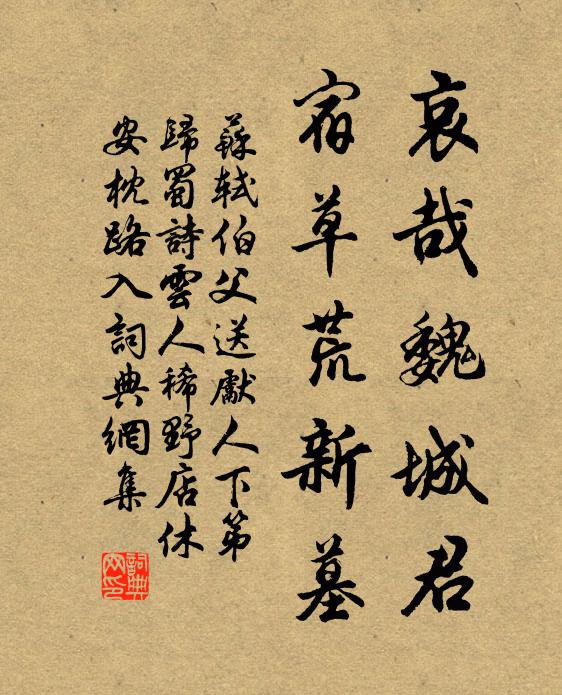 哀哉魏城君
宿草荒新墓
蘇軾伯父送獻人下第
歸蜀詩雲人稀野店休
安枕路入詞典網集
詞典
网印